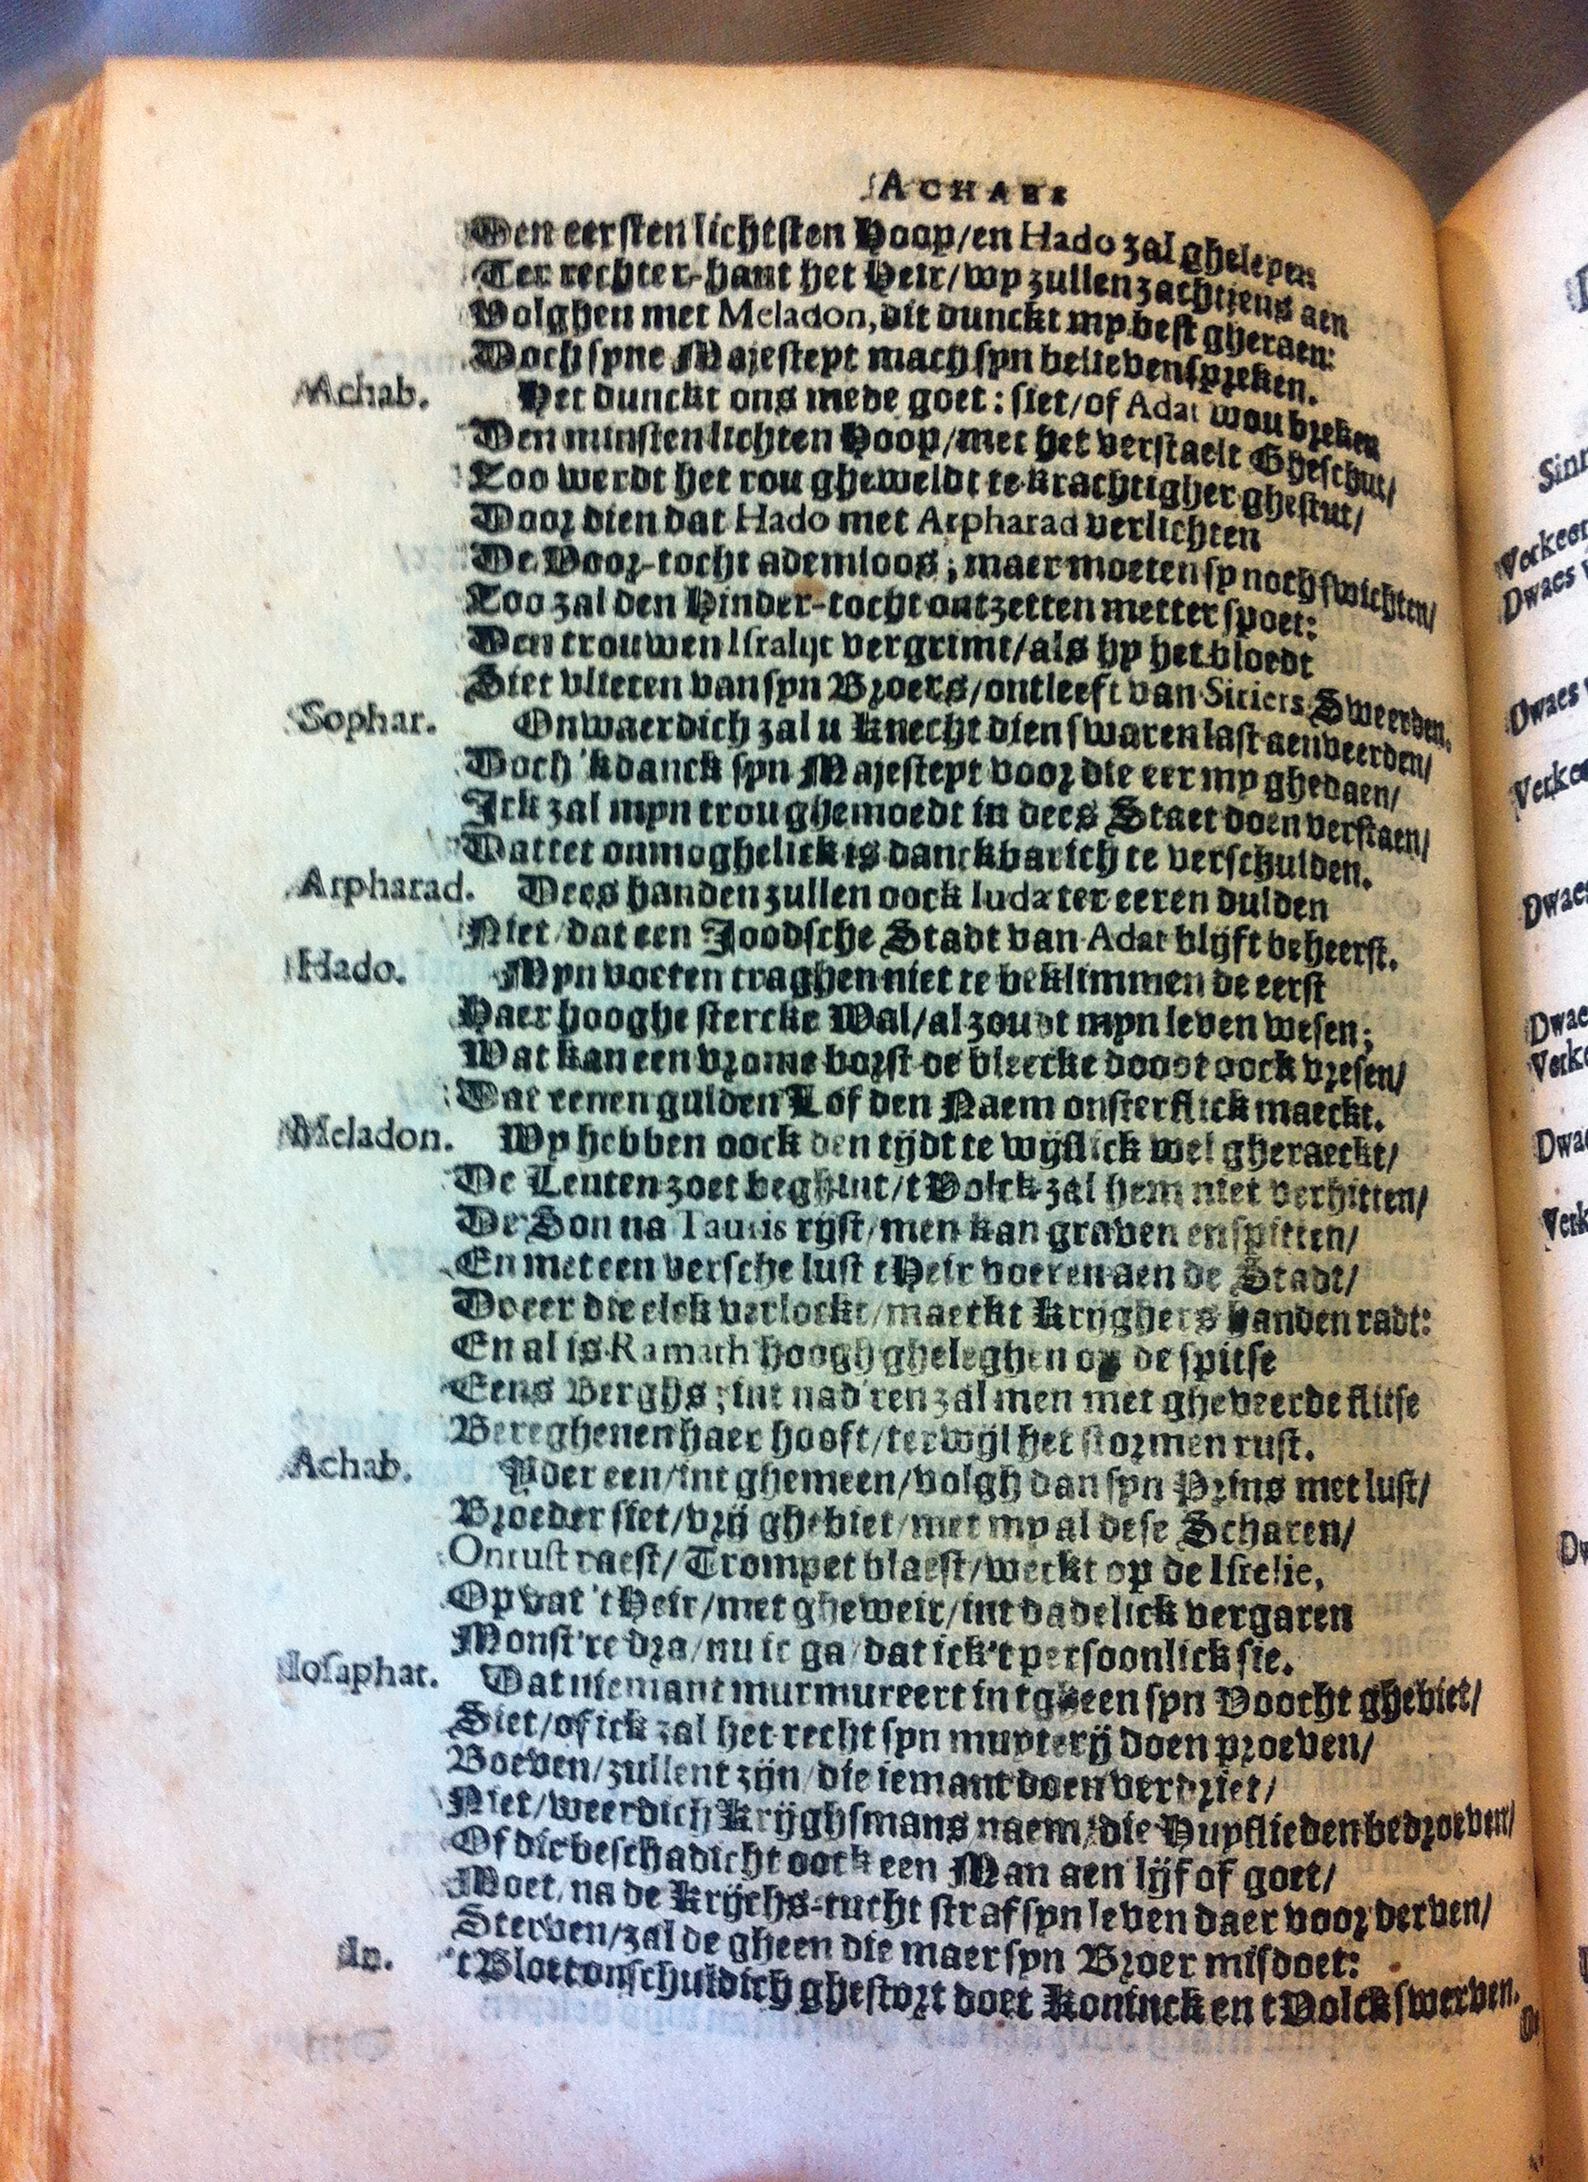 ACHABS
Den eersten lichtsten Hoop/en Hado zal gheleyen
Ter rechter-hant het Heir/wy zullen zachtjens aen
Volghen met Meladon, dit dunckt my best gheraen:
Doch syne Majesteyt mach syn believen spreken.
Achab. Het dunckt ons mede goet: siet/of Adat wou breken
Den minsten lichten Hoop/met het verstaelt Gheschut/
Zoo werdt het rou gheweldt te krachtigher ghestut/
Door dien dat Hado met Arpharad verlichten
De Voor-tocht ademloos; maer moeten sy noch swichten/
Zoo zal den Hinder-tocht ontzetten metter spoet:
Den trouwen Isralijt vergrimt/als hy het bloedt
Siet vlieten van syn Broers/ontleeft van Siriers Sweerden.
Sophar. Onwaerdich zal u knecht dien swaren last aenveerden/
Doch 'k danck syn Majesteyt voor die eer my ghedaen/
Ick zal myn trou ghemoedt in dees Staet doen verstaen/
Dattet onmoghelick is danckbarich te verschulden.
Arpharad. Dees handen zullen oock Iuda ter eeren dulden
Niet/dat een Joodsche Stadt van Adat blijft beheerst.
Hado. Myn voeten traghen niet te beklimmen de eerst
Haer hooghe stercke Wal/al zoudt myn leven wesen;
Wat kan een vrome borst de bleecke doodt oock vresen/
Dat eenen gulden Lof den Naem onsterflick maeckt.
Meladon. Wy hebben oock den tijdt te wijslick wel gheraeckt/
De Lenten zoet beghint/t Volck zal hem niet verhitten/
De Son na Tauris rijst/men kan graven en spitten/
En met een versche lust t Heir voeren aen de Stadt/
Do eer die elck verlockt/maeckt Krijghers handen radt:
En al is Ramath hoogh gheleghen op de spitse
Eens Berghs; int nad'ren zal men met gheveerde flitse
Bereghenen haer hooft/terwijl het stormen rust.
Achab. Yder een/int ghemeen/volgh dan syn Prins met lust/
Broeder siet/vrij ghebiet/met my al dese Scharen/
Onrust raest/Trompet blaest/weckt op de Isrelie,
Op dat 't Heir/met gheweir/int dadelick vergaren
Monst're dra/nu ic ga/dat ick't persoonlick sie.
Iosaphat. Dat niemant murmureert in tgheen syn Voocht ghebiet/
Siet/of ick zal het recht syn muyterij doen proeven/
Boeven/zullent zijn/die iemant doen verdriet/
Niet/weerdich Krijghsmans naem/die Huyslieden bedroeven/
Of die beschadicht oock een Man aen lijf of goet/
Moet, na de Krijchs-tucht straf syn leven daer voor derven/
Sterven/zal de gheen die maer syn Broer misdoet:
In. 't Bloet onschuldich ghestort doet Koninck en t Volck swerven.